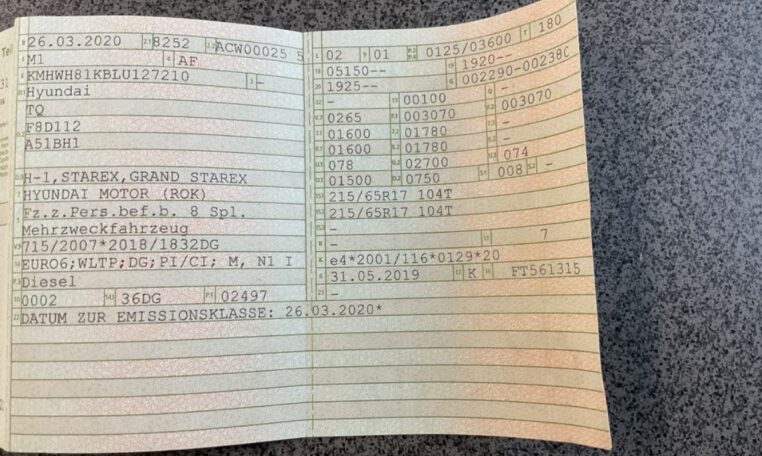 26.03.2020 8252 ACW00025 5
M1 AF
KMHWH81KBLU127210 -
Hyundai
TQ
F8D112
A51BH1
H-1,STAREX,GRAND STAREX
HYUNDAI MOTOR (ROK)
Fz.z.Pers.bef.b. 8 Spl.
Mehrzweckfahrzeug
715/2007*2018/1832DG
EURO6;WLTP;DG;PI/CI; M, N1 I
Diesel
0002 36DG 02497
DATUM ZUR EMISSIONSKLASSE: 26.03.2020*
02 01 0125/03600 180
05150-- 1920--
1925-- 002290-00238
- 00100 -
0265 003070 003070
01600 01780 -
01600 01780 -
078 02700 074
01500 0750 008 -
215/65R17 104T
215/65R17 104T
-
- 7
e4*2001/116*0129*20
31.05.2019 K FT561315
-